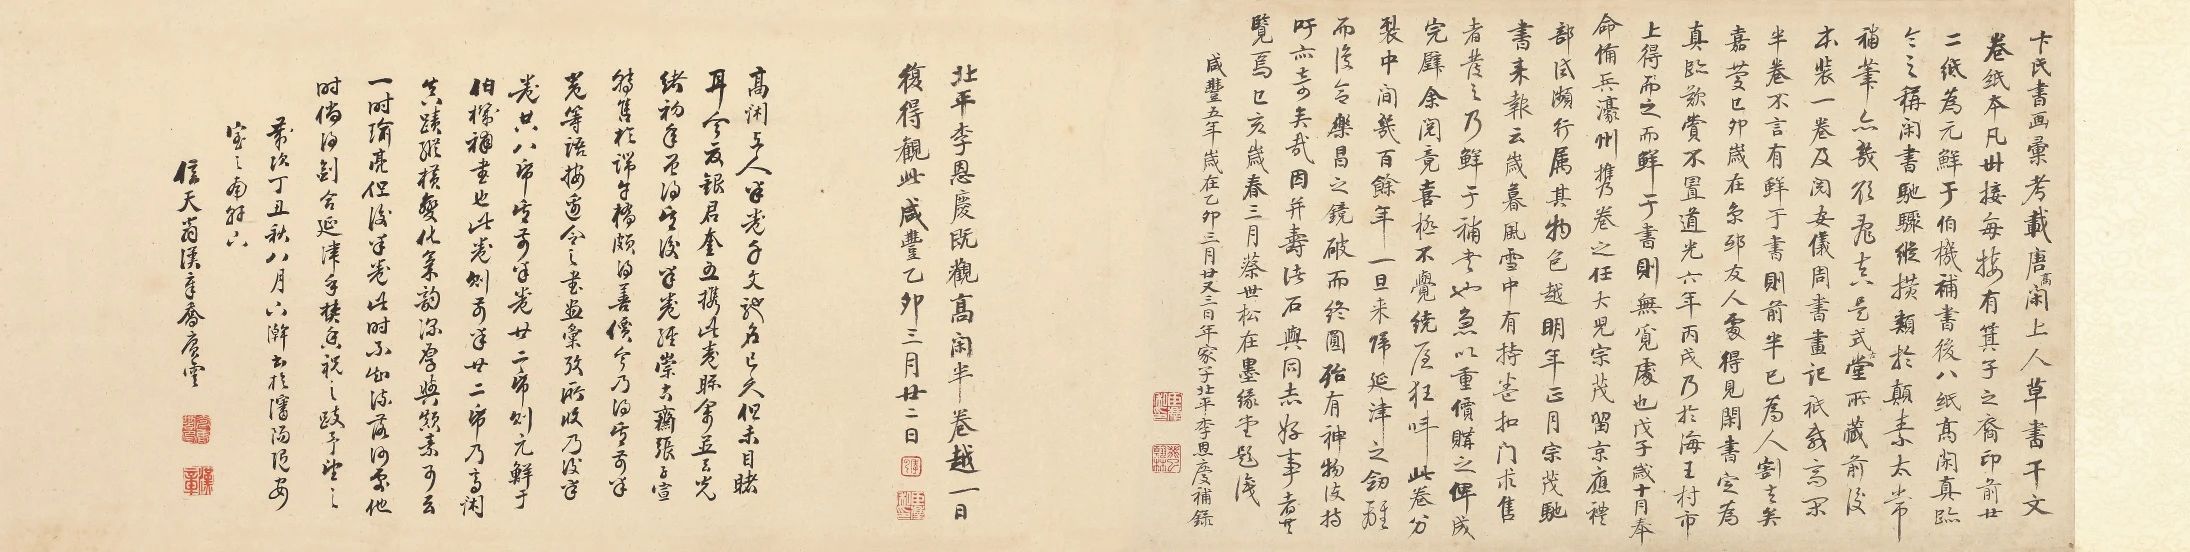 卞氏書画彙考載唐高閑上人草書千文
卷紙本凡卅接每接有箕子之裔印前廿
二紙為元鮮于伯機補書後八紙高閑真臨
今之稱閑書馳驟縱横類於顛素太常
補筆亦
是式古堂所藏前後
本裝一卷及閱安儀周書畫記祇載高閑
半卷不言有鮮于書則前半已為人割去矣
嘉慶己卯歲在京邸友人處得見閑書定為
真臨歎賞不置道光六年丙戌乃於海王村市
上得前之而鮮于書則無覓處也戊子歲十月奉
命備兵濠州攜卷之任大兒宗茂留京應禮
部試瀕行属其物色越明年正月宗茂馳
書来報云歲暮風雪中有持卷扣门求售
者發之乃鮮于補書也急以重價購之俾成
完璧余閱竟喜極不覺繞屋狂呌此卷分
裂中间幾百餘年一旦来歸延津之劒離
而復合樂昌之鏡破而終圓殆有神物護持
吁亦奇矣哉因并壽諸石與同志好事者共
覽焉己亥歲春三月蔡世松在墨緣堂題識
咸豐五年歲在乙卯三月廿又三日年家子北平李恩慶補録
北平李恩慶既觀高閑半卷越一日
復得觀此咸豐乙卯三月廿二日
高閑上人半卷千文馳名已久但未目睹
耳今友銀君奎五攜此卷賑余並云光
緒初年曾得其後半卷經崇古齋張子宣
轉售於端午橋頗得善價今乃得其前半
卷等語按卞令之書画彙攷所收乃後半
卷廿八帋其前半卷廿二帋則元鮮于
伯機補書也此卷則前半廿二帋乃高閑
真蹟縱横變化氣韵深厚與顛素可云
一时瑜亮但後半卷此时不知流落何處他
时倘得劍合延津余焚香祝之跋予望之
歲次丁丑秋八月六澣書於瀋陽隐安
室之南軒六
信天翁漢章喬廣雲